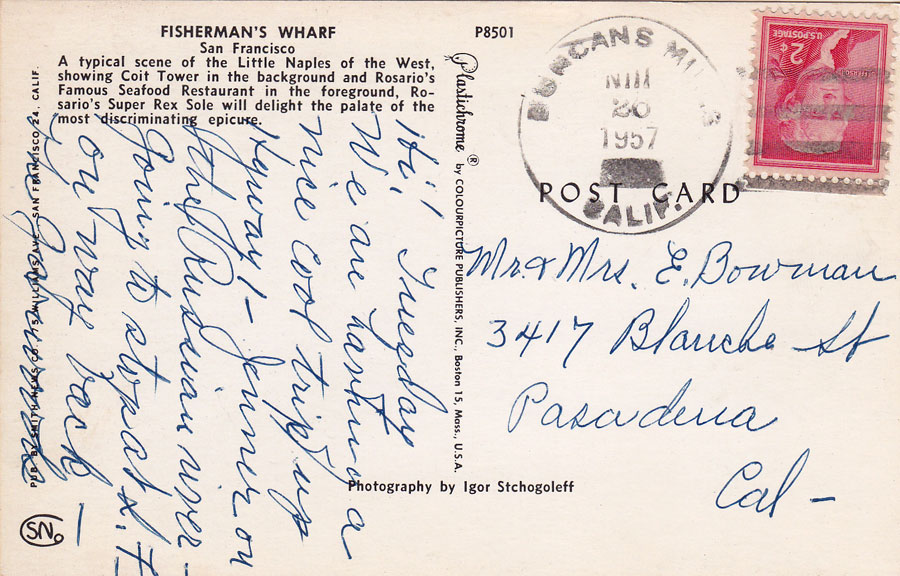 FISHERMAN'S WHARF
San Francisco
A typical scene of the Little Naples of the West,
showing Coit Tower in the background and Rosario's
Famous Seafood Restaurant in the foreground, Ro-
sario's Super Rex Sole will delight the palate of the
most discriminating epicure.
Hi! Tuesday
We are having a
nice cool trip up
Hyway 1 - Jenner on
the Russian river -
Going to stop at
on way back -
PUB. BY SMITH NEWS CO., 75 WILLIAMS AVE., SAN FRANCISCO 24, CALIF.
SN
Plastichrome ® by COLOURPICTURE PUBLISHERS, INC., Boston 15, Mass., U.S.A.
P8501
DUNCANS MILLS
20
1957
CALIF.
U.S. POSTAGE
2¢
POST CARD
Mr & Mrs. E. Bowman
3417 Blanche St
Pasadena
Cal -
Photography by Igor Stchogoleff